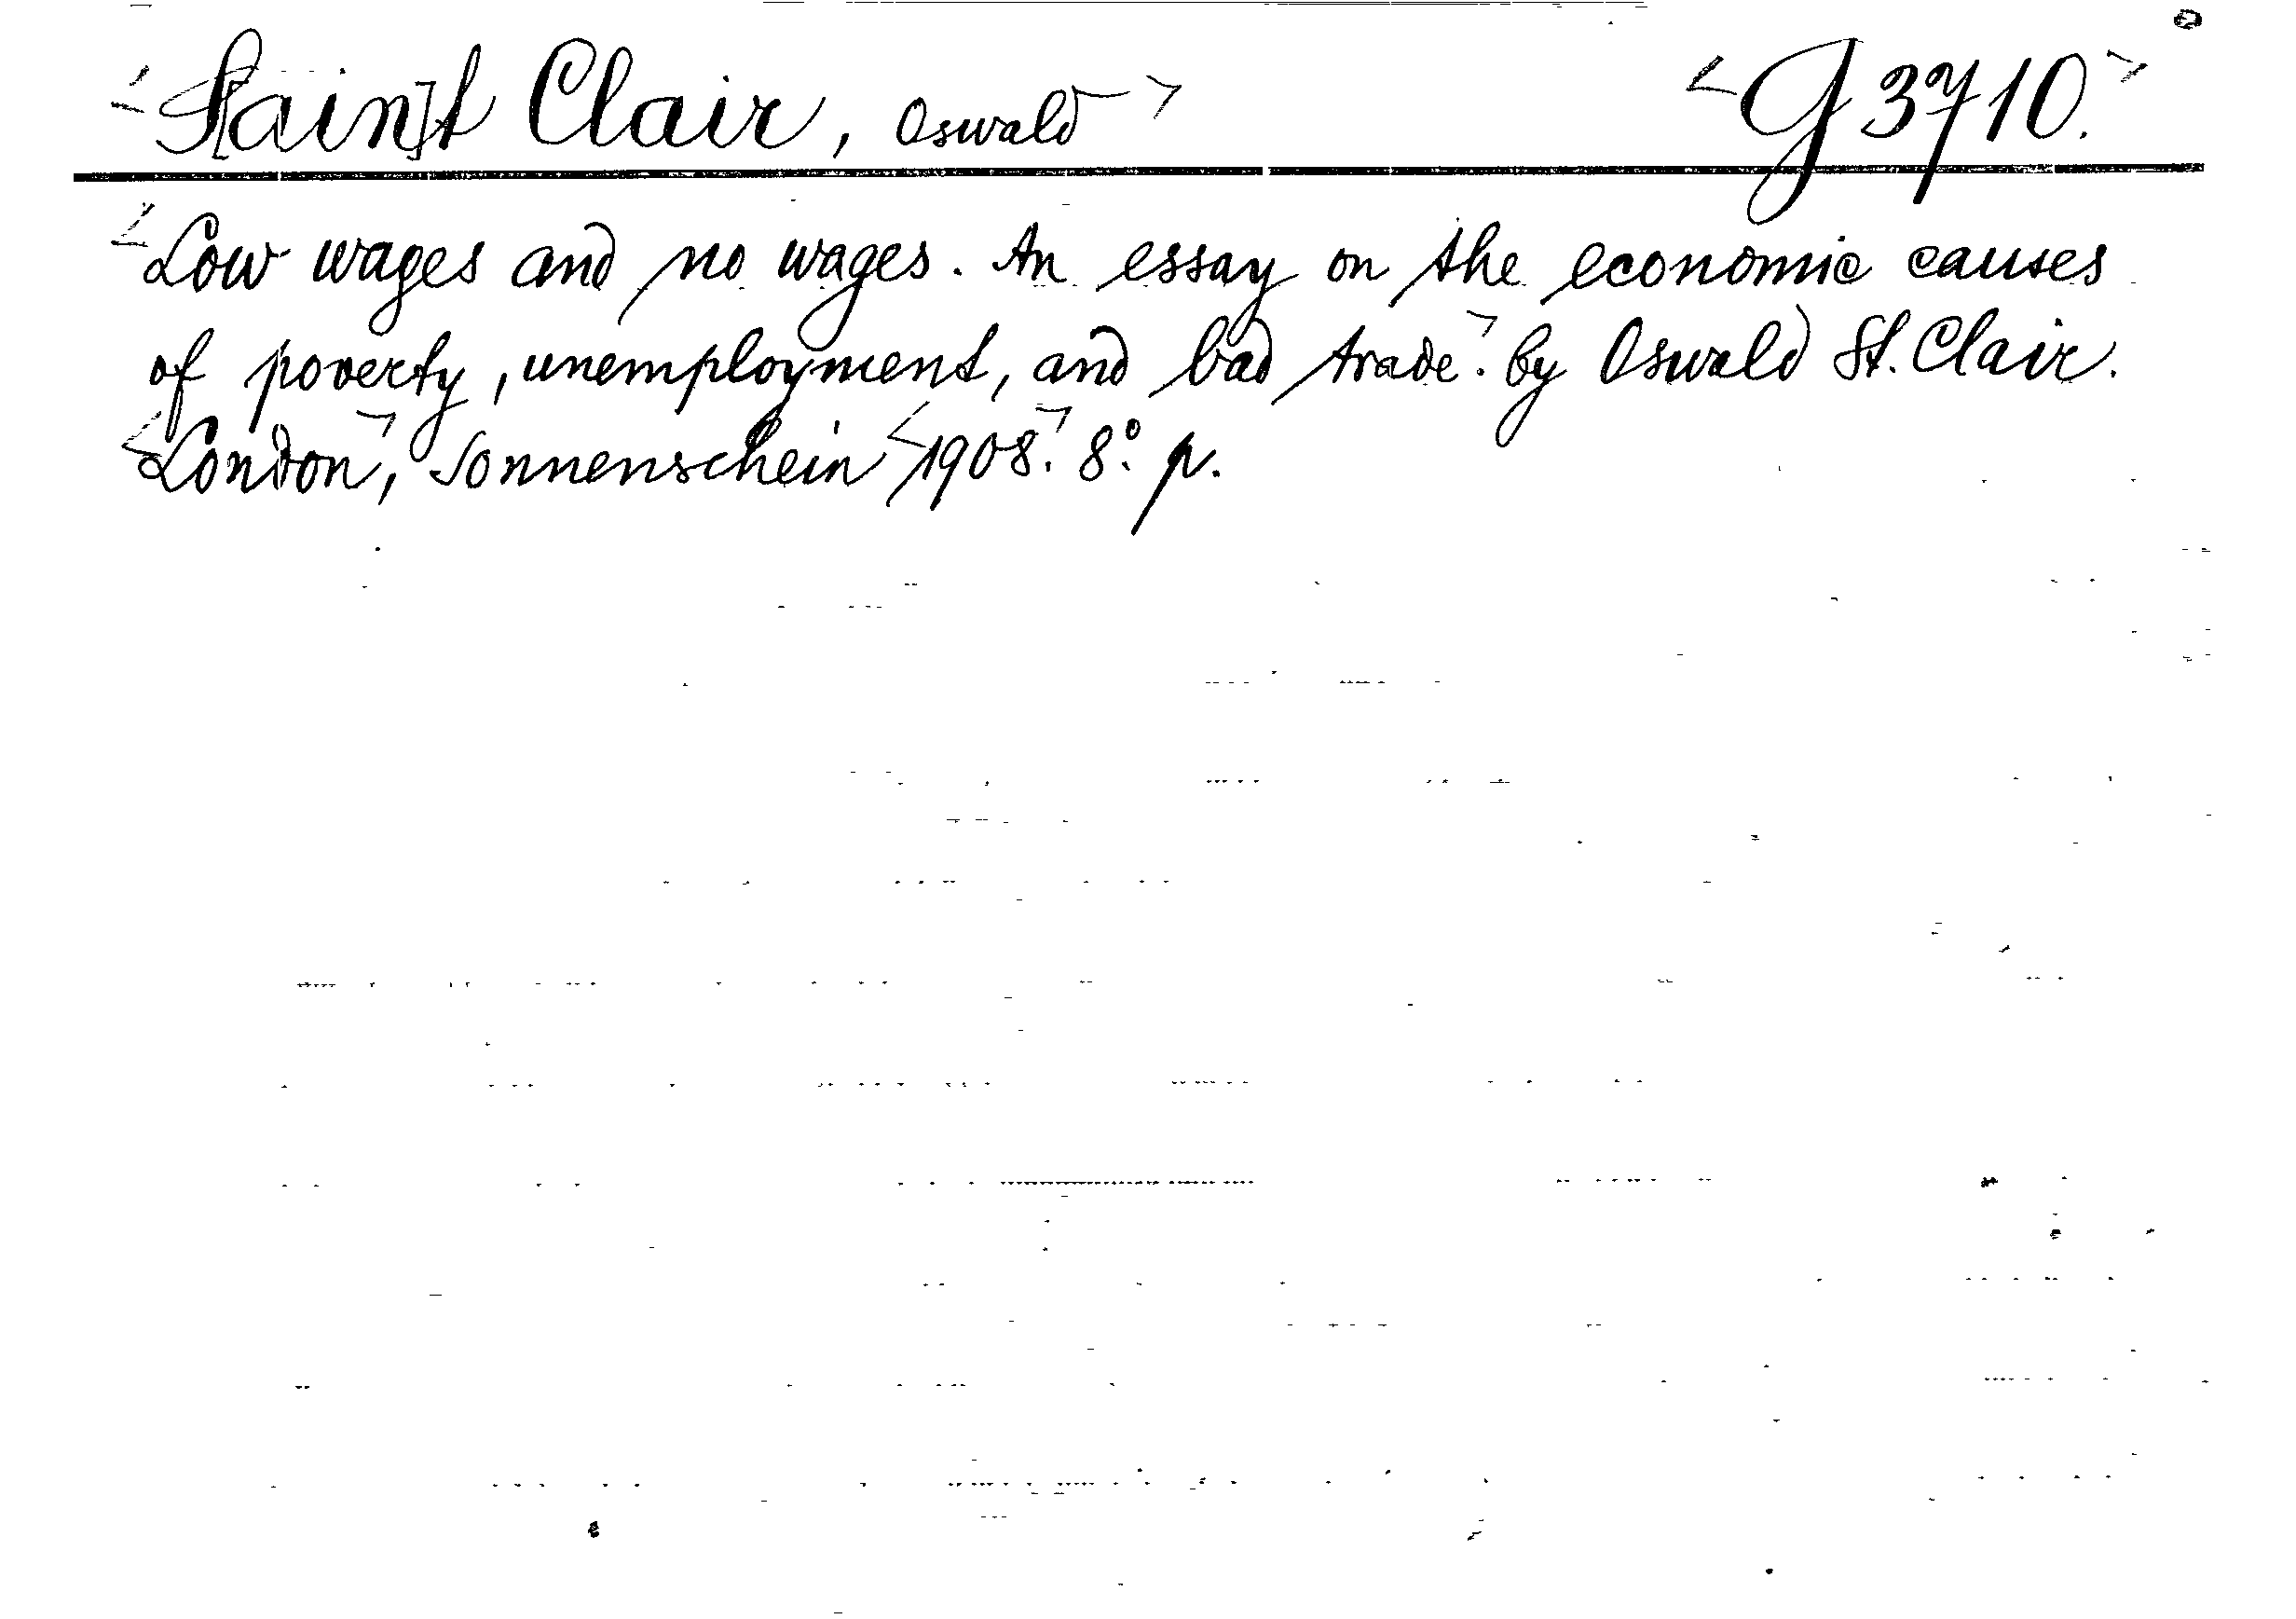 <S[ain]t Clair, Oswald> <G 3710.>
<Low wages and no wages. An essay on the economic causes
of poverty, unemployment, and bad trade>. by Oswald St. Clair.
<London>, Sonnenschein <1908>. 8° p.